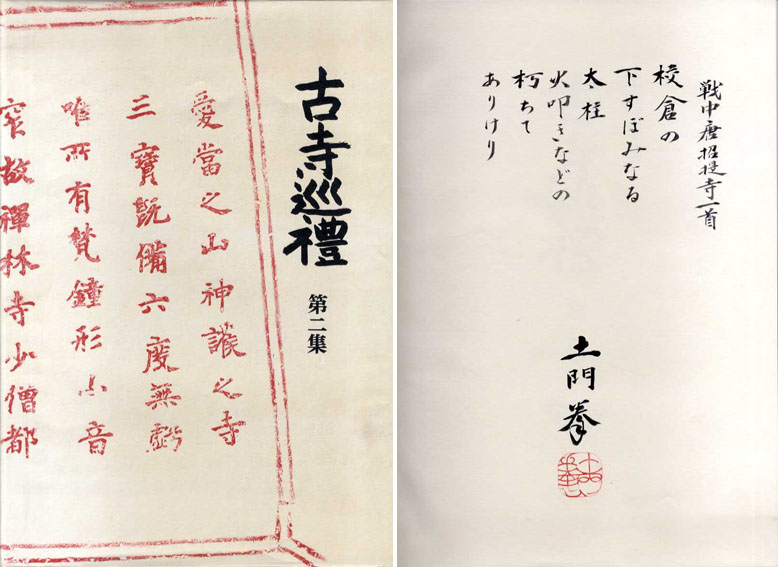 古寺巡禮
第二集
愛當之山神護之寺
三寶既備六度無虧
唯所有梵鐘形小音
窄故禪林寺少僧都
戦中唐招提寺一首
校倉の
下すぼみなる
太柱
火叩きなどの
朽ちて
ありけり
土門拳